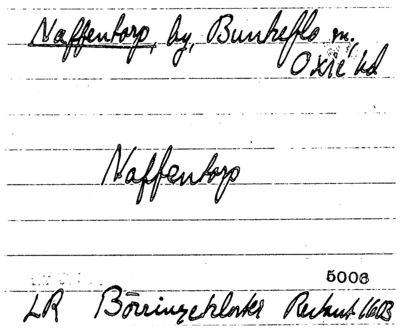 Naffentorp, by, Bunkeflo sn,
Oxie hd
Naffentorp
5006
LR Börringekloster Restant 1603